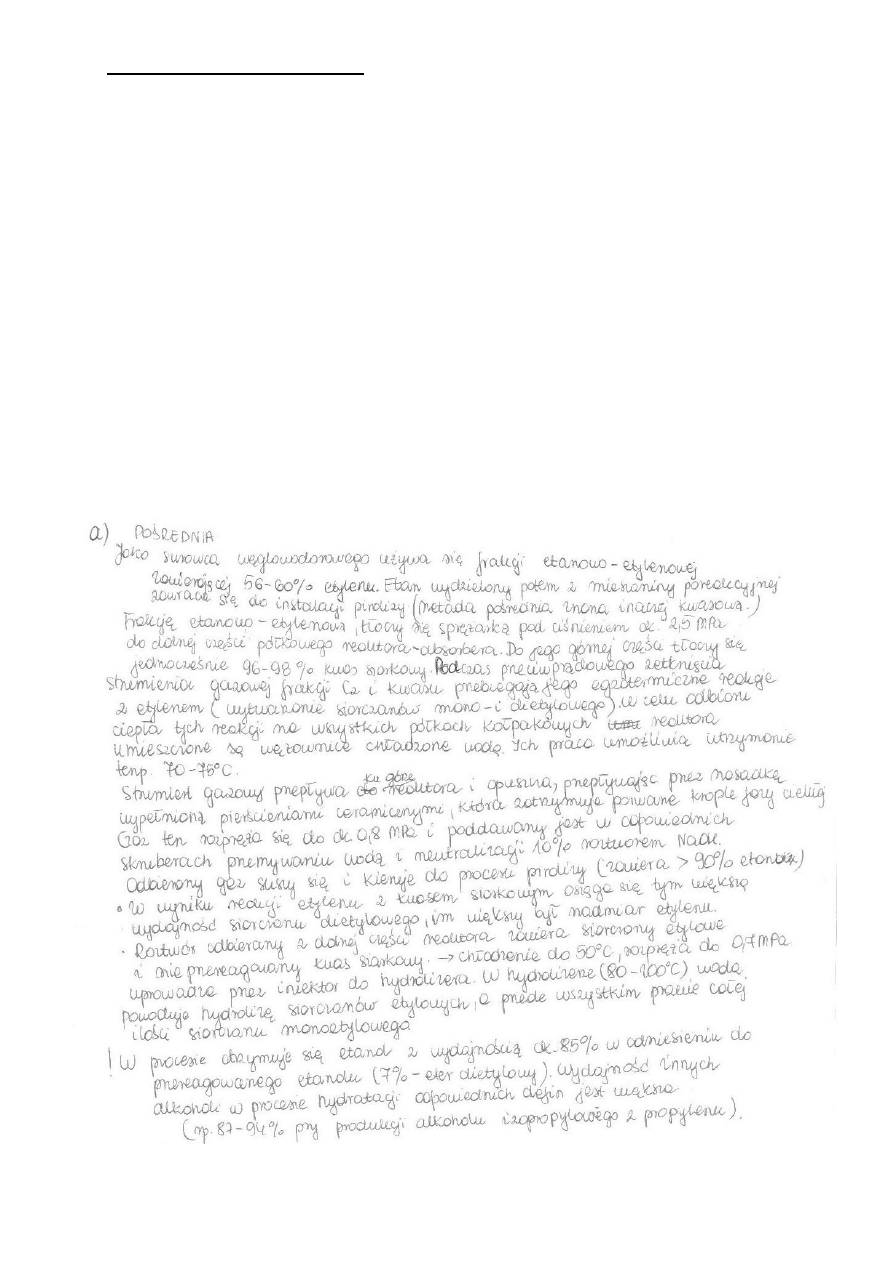 a) POŚREDNIA
Jako surowca węglowodorowego używa się frakcji etanowo-etylenowej
zawierającej 56-60% etylenu. Etan wydzielony potem z mieszaniny poreakcyjnej
zawraca się do instalacji pirolizy (metoda pośrednia znana inaczej kwasowa.)
Frakcję etanowo-etylenową, tłoczy się sprężarką pod ciśnieniem ok. 2,5 MPa
do dolnej części półkowego reaktora-absorbera. Do jego górnej części tłoczy się
jednocześnie 96-98% kwas siarkowy. Podczas przeciwprądowego zetknięcia
strumienia gazowej frakcji C2 i kwasu przebiegają jego egzotermiczne reakcje
z etylenem (wytwarzanie siarczanów mono-i dietylowego). W celu odbioru
ciepła tych reakcji na wszystkich półkach kołpakowych reaktora
umieszczone są wężownice chłodzone wodą. Ich praca umożliwia utrzymanie
temp. 70-75°C.
Strumień gazowy przepływa ku górze reaktora i opuszcza, przepływając przez nasadkę
wypełnioną pierścieniami ceramicznymi, która zatrzymuje porwane krople fazy ciekłej
Gaz ten rozpręża się do ok. 0,8 MPa i poddawany jest w odpowiednich
skruberach przemywaniu wodą i neutralizacji 10% roztworem NaOH.
Odbierany gaz suszy się i kieruje do procesu pirolizy (zawiera > 90% etanu)
• W wyniku reakcji etylenu z kwasem siarkowym osiąga się tym większą
wydajność siarczanu dietylowego, im większy był nadmiar etylenu.
• Roztwór odbierany z dolnej części reaktora zawiera siarczany etylowe
i nie przereagowany kwas siarkowy. → chłodzenie do 50°C, rozpręża do 0,7 MPa
wprowadza przez iniektor do hydrolizera. W hydrolizerze (80-100°C) woda
powoduje hydrolizę siarczanów etylowych, a przede wszystkim prawie całej
ilości siarczanu monoetylowego
! W procesie otrzymuje się etanol z wydajnością ok. 85% w odniesieniu do
przereagowanego etanolu (7% - eter dietylowy). Wydajność innych
alkoholi w procesie hydratacji odpowiednich olefin jest większa
(np. 87-94% przy produkcji alkoholu izopropylowego z propylenu).